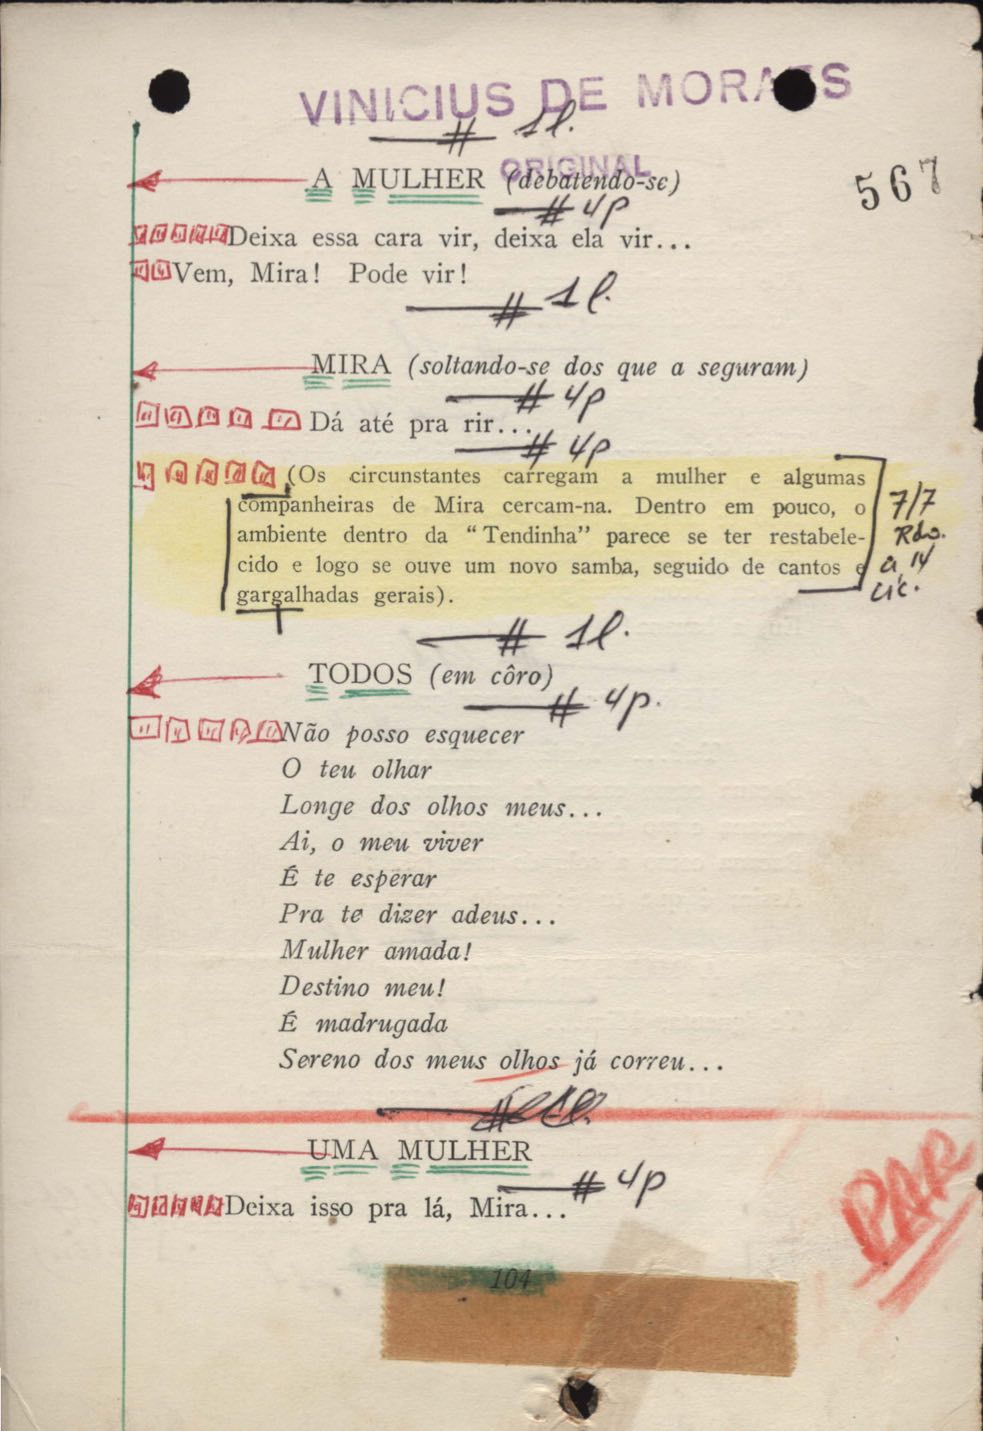 VINICIUS DE MORAES
# 1 l.
ORIGINAL
567
A MULHER (debatendo-se)
# 4p
Deixa essa cara vir, deixa ela vir...
Vem, Mira! Pode vir!
# 1 l.
MIRA (soltando-se dos que a seguram)
# 4p
Dá até pra rir...
# 4p
(Os circunstantes carregam a mulher e algumas
companheiras de Mira cercam-na. Dentro em pouco, o
ambiente dentro da "Tendinha" parece se ter restabele-
cido e logo se ouve um novo samba, seguido de cantos e
gargalhadas gerais).
7/7
Rdo.
a 14
cic.
# 1 l.
TODOS (em côro)
# 4p.
Não posso esquecer
O teu olhar
Longe dos olhos meus...
Ai, o meu viver
É te esperar
Pra te dizer adeus...
Mulher amada!
Destino meu!
É madrugada
Sereno dos meus olhos já correu...
UMA MULHER
# 4p
Deixa isso pra lá, Mira...
PAR
104